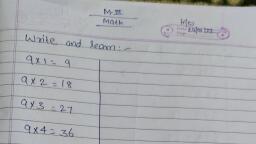 Math
Write and learn:-
9x1 = 9
9x2 = 18
9x3 = 27
9x4 = 36